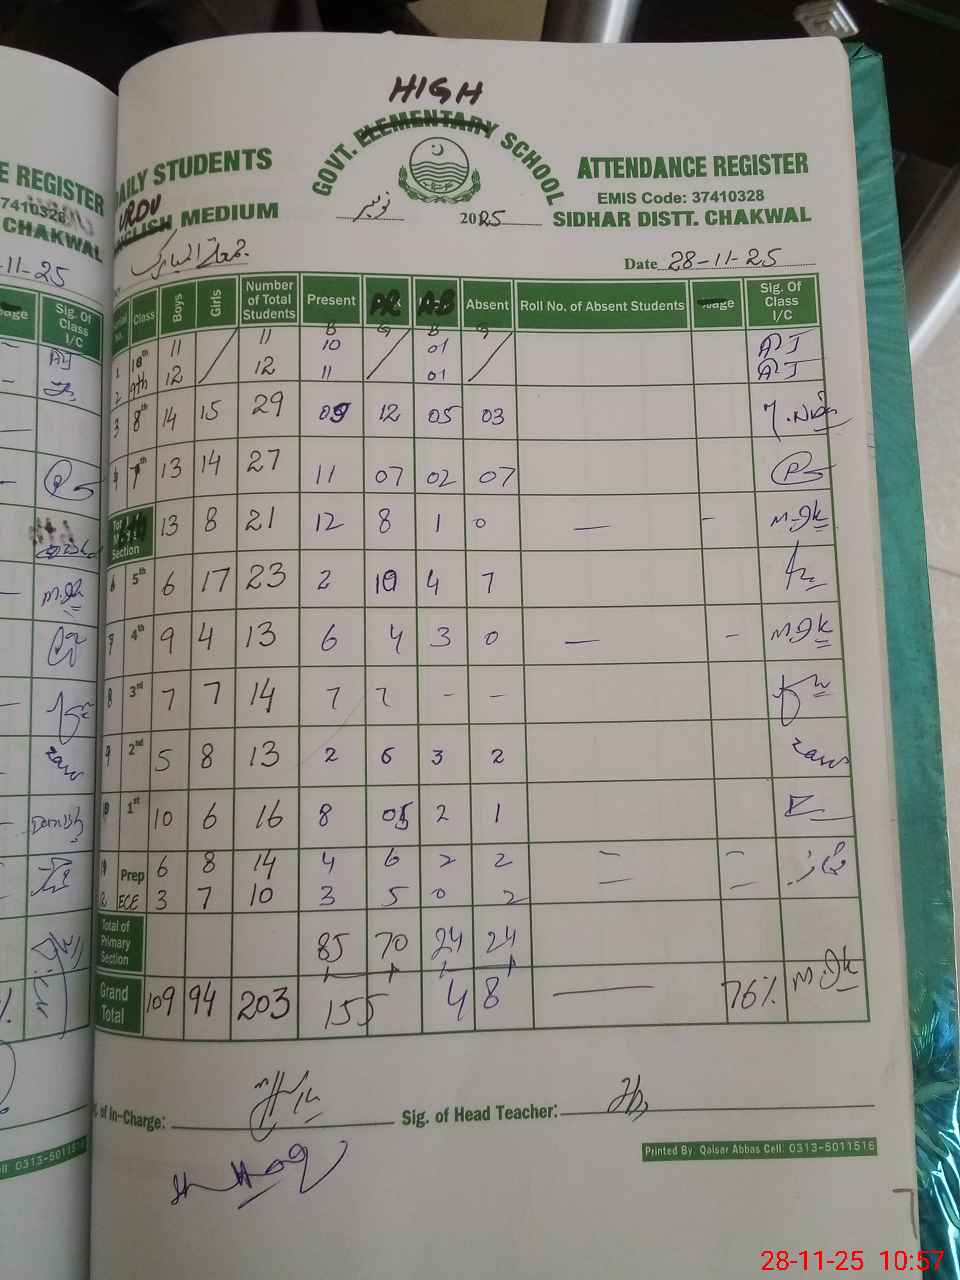 HIGH
GOVT. ELEMENTARY SCHOOL
DAILY STUDENTS
ATTENDANCE REGISTER
URDU
ENGLISH MEDIUM
EMIS Code: 37410328
نومبر 2025
SIDHAR DISTT. CHAKWAL
جمعۃ المبارک
Date 28-11-25
Class Boys Girls Number of Total Students Present AB Absent Roll No. of Absent Students Sig. Of Class I/C
B G B G
1 10th 11 11 10 01
2 9th 12 12 11 01
3 8th 14 15 29 09 12 05 03
4 7th 13 14 27 11 07 02 07
Section 13 8 21 12 8 1 0 — -
6 5th 6 17 23 2 10 4 7
7 4th 9 4 13 6 4 3 0 — -
8 3rd 7 7 14 7 7 - -
9 2nd 5 8 13 2 6 3 2
1st 10 6 16 8 05 2 1
Prep 6 8 14 4 6 2 2 — —
ECE 3 7 10 3 5 0 2 — —
Total of Primary Section 85 70 24 24
Grand Total 109 94 203 155 48 — 76%
Sig. of In-Charge:
Sig. of Head Teacher:
Printed By. Qaisar Abbas Cell: 0313-5011516
E REGISTER
37410328
CHAKWAL
-11-25
Sig. Of Class I/C
Danish
Cell: 0313-5011516
28-11-25 10:57